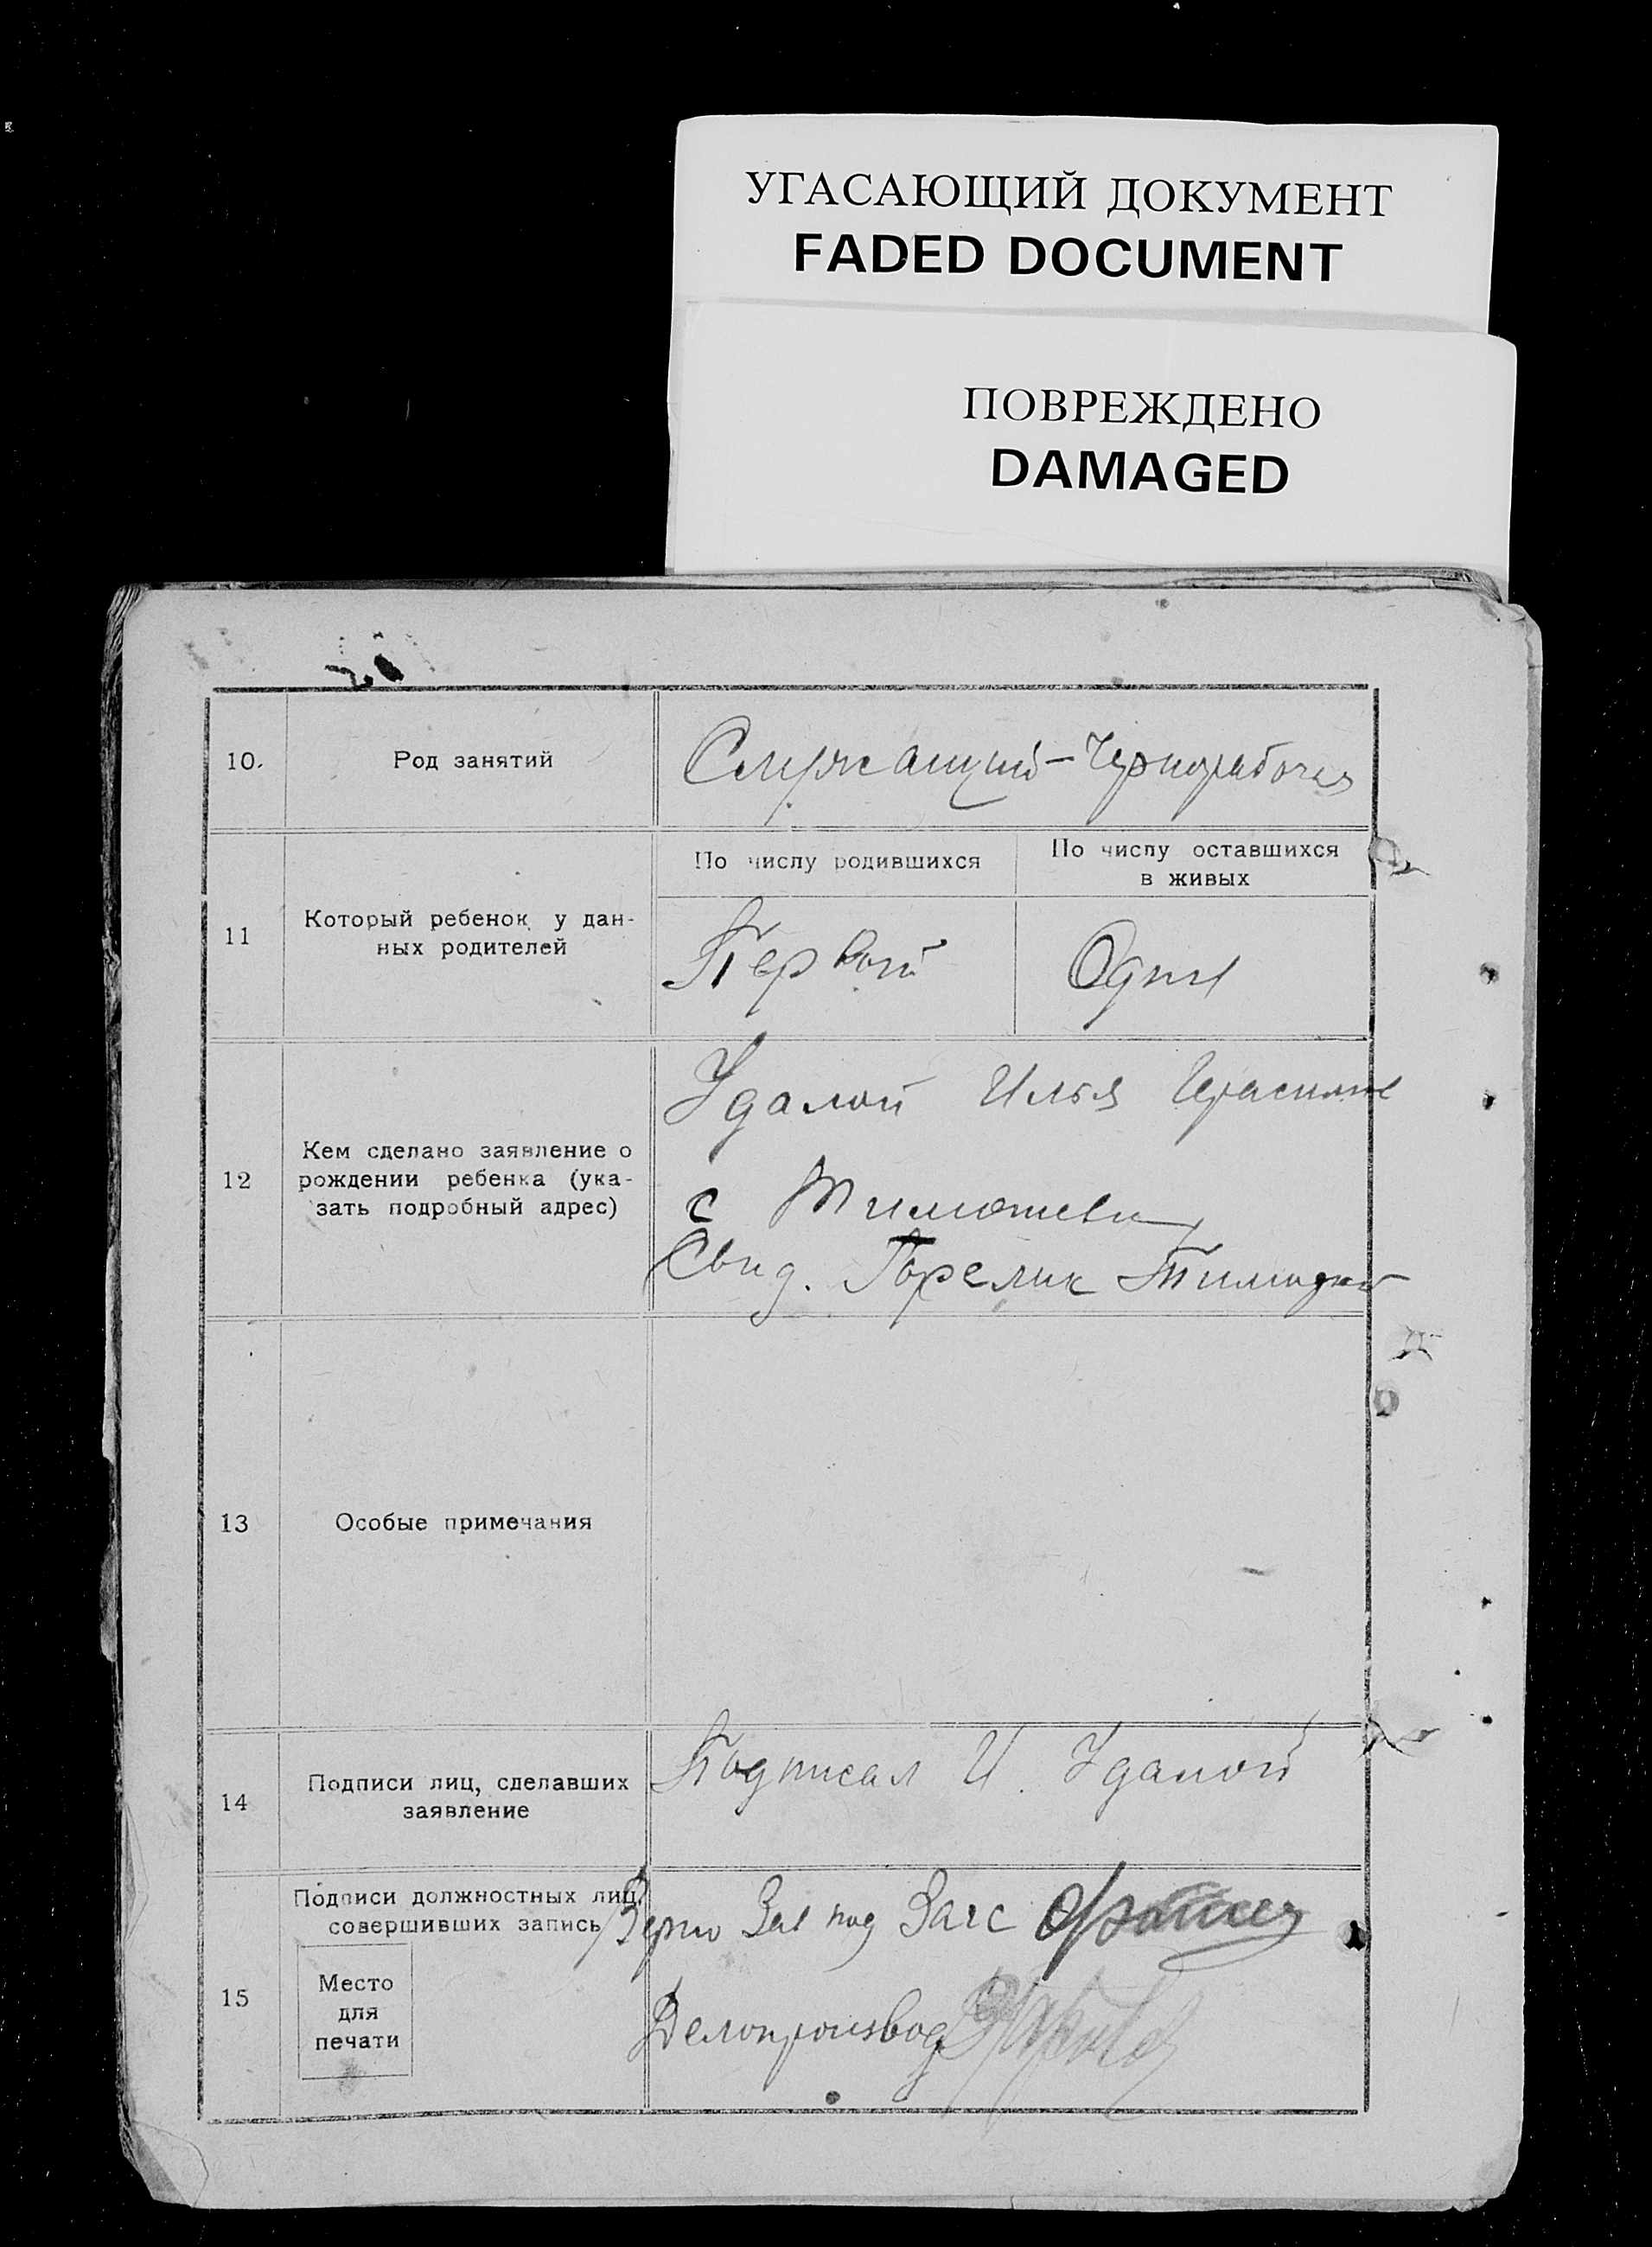 УГАСАЮЩИЙ ДОКУМЕНТ
FADED DOCUMENT
ПОВРЕЖДЕНО
DAMAGED
10.
Род занятий
Служащий – Чернорабочая
11
Который ребенок у дан-
ных родителей
По числу родившихся
По числу оставшихся
в живых
Первый
Один
12
Кем сделано заявление о
рождении ребенка (ука-
зать подробный адрес)
Удалой Илья
с
Свид. Горелик
13
Особые примечания
14
Подписи лиц, сделавших
заявление
Подписал И. Удалой
15
Подписи должностных лиц,
совершивших запись
Верно Зав под Загс
Место
для
печати
Делопроизвод